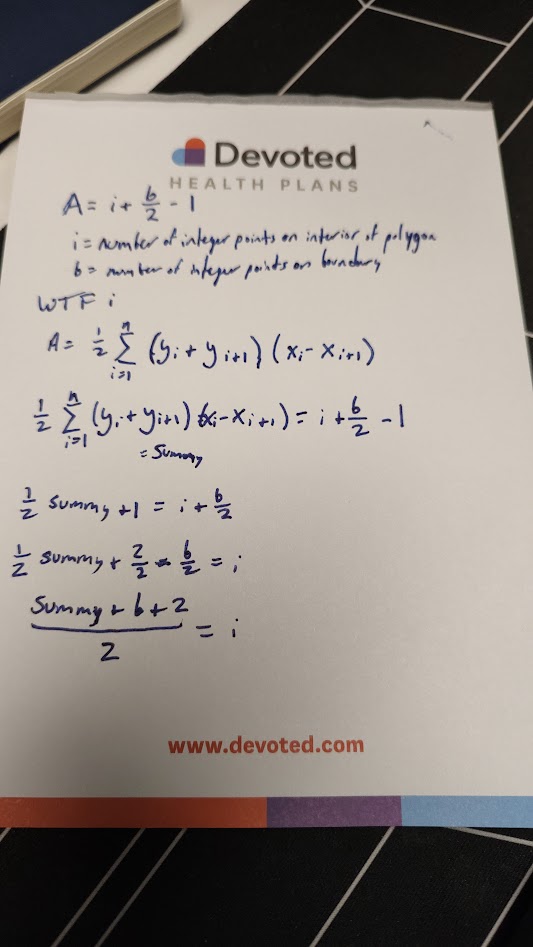 Devoted
HEALTH PLANS
A = i + b/2 - 1
i = number of integer points on interior of polygon
b = number of integer points on boundary
WTF i
A = 1/2 Σ_{i=1}^{n} (y_i + y_{i+1}) (x_i - x_{i+1})
1/2 Σ_{i=1}^{n} (y_i + y_{i+1}) (x_i - x_{i+1}) = i + b/2 - 1
= summy
1/2 summy + 1 = i + b/2
1/2 summy + 2/2 - b/2 = i
(summy + b + 2)/2 = i
www.devoted.com